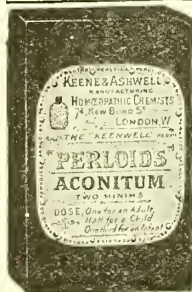 KEENE & ASHWELL
MANUFACTURING
HOMŒOPATHIC CHEMISTS
74, NEW BOND ST
LONDON, W
THE "KEENWELL"
PERLOIDS
ACONITUM
TWO MINIMS
DOSE, One for an Adult
Half for a Child
One third for an Infant